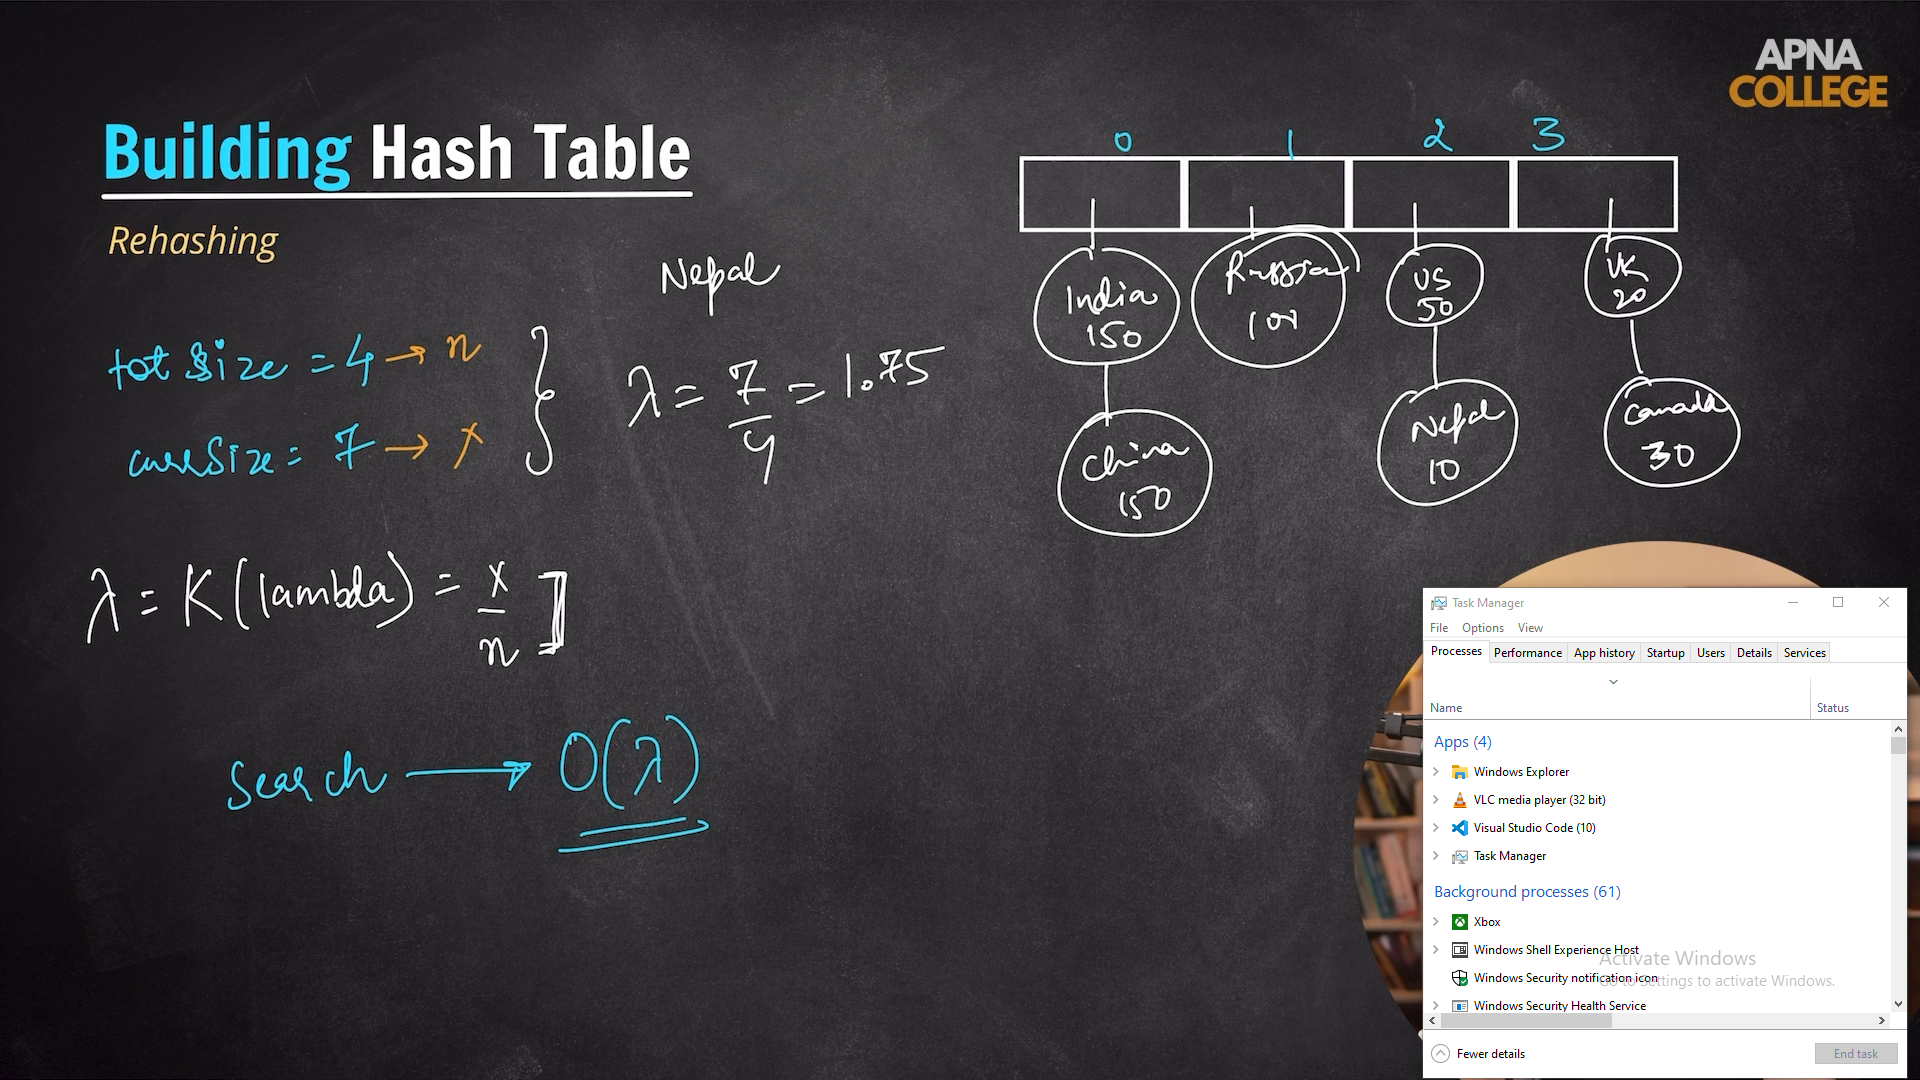 APNA
COLLEGE
Building Hash Table
Rehashing
Nepal
tot Size = 4 → n
currSize = 7 → x
λ = 7/4 = 1.75
λ = K (lambda) = x/n
Search → O(λ)
0 1 2 3
India
150
Russia
US
50
UK
20
China
150
Nepal
10
Canada
30
Task Manager
File Options View
Processes Performance App history Startup Users Details Services
Name Status
Apps (4)
Windows Explorer
VLC media player (32 bit)
Visual Studio Code (10)
Task Manager
Background processes (61)
Xbox
Windows Shell Experience Host
Windows Security notification icon
Windows Security Health Service
Activate Windows
Go to Settings to activate Windows.
Fewer details End task